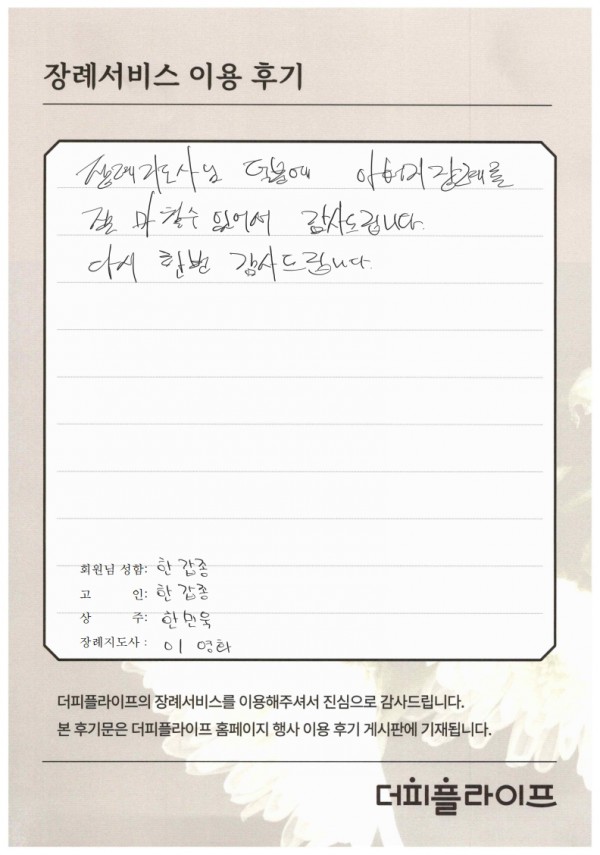 장례서비스 이용 후기
장례지도사님 덕분에 아버지 장례를
잘 마칠수 있어서 감사드립니다.
다시 한번 감사드립니다.
회원님 성함: 한갑종
고 인: 한갑종
상 주: 한민욱
장례지도사 : 이영화
더피플라이프의 장례서비스를 이용해주셔서 진심으로 감사드립니다.
본 후기문은 더피플라이프 홈페이지 행사 이용 후기 게시판에 기재됩니다.
더피플라이프